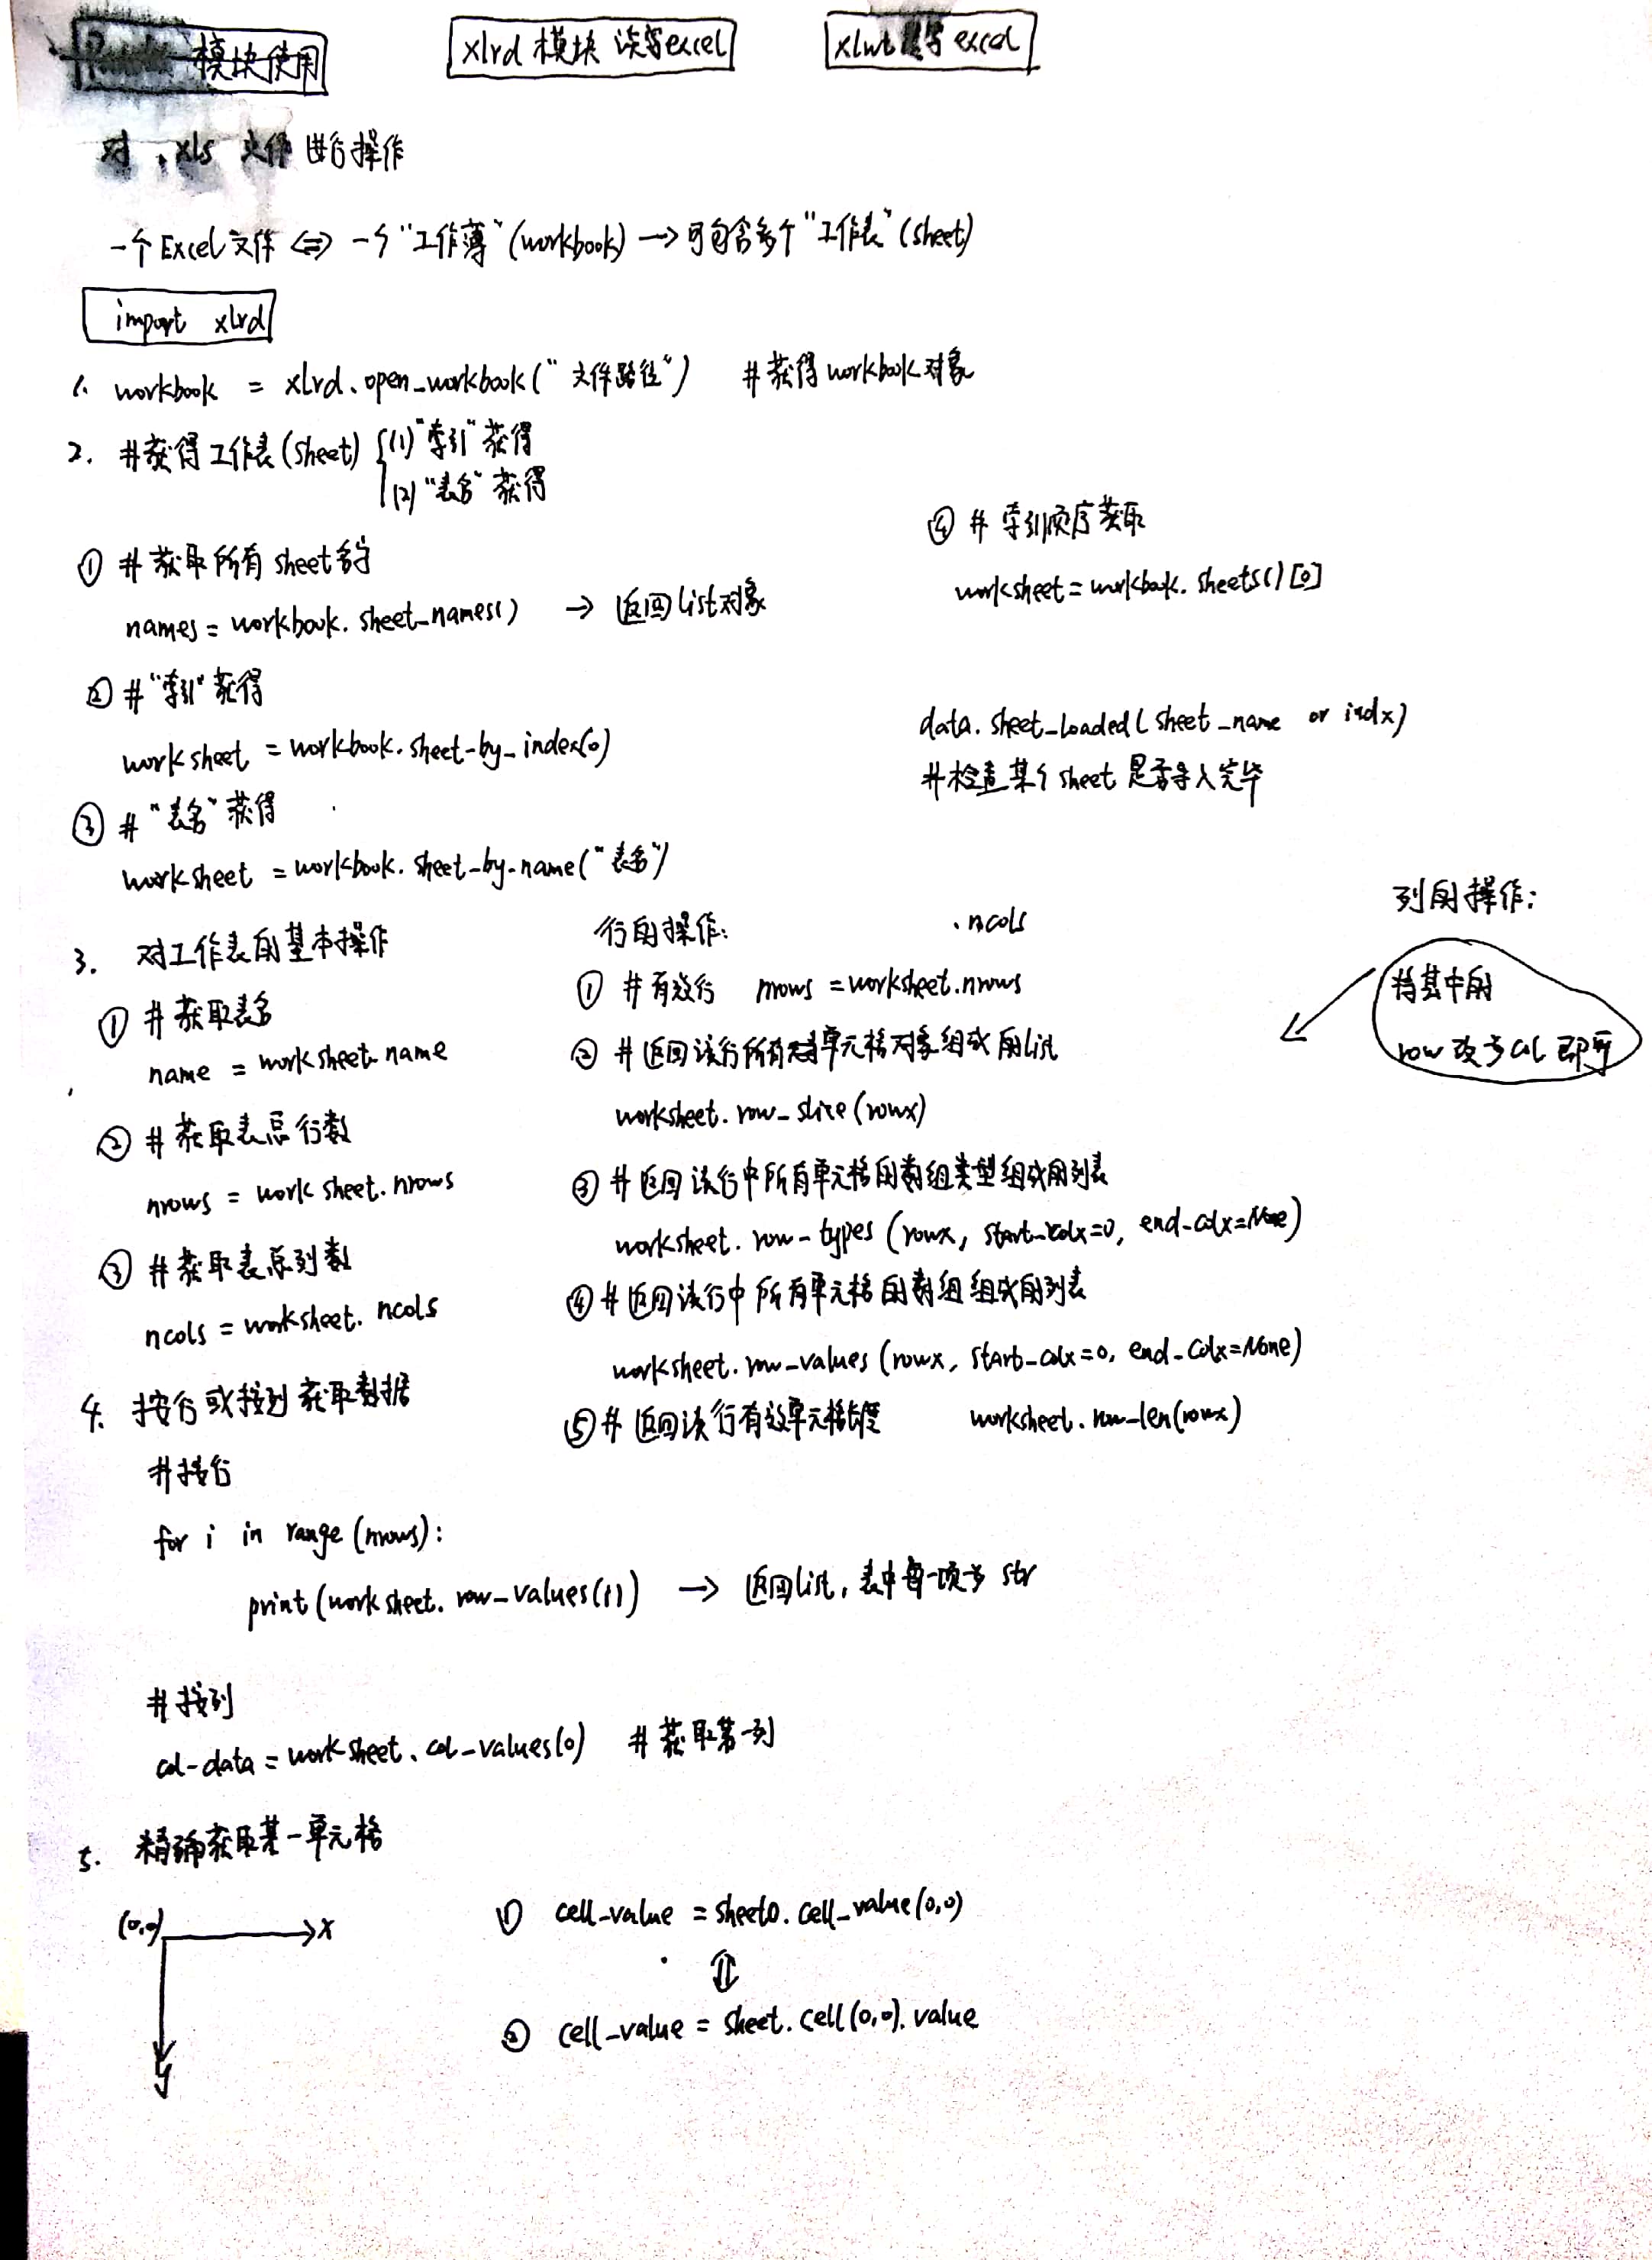 模块使用
xlrd 模块 读写excel
xlwt 写 excel
对 .xls 文件 进行操作
一个 Excel 文件 <=> 一个 "工作薄" (workbook) → 可包含多个 "工作表" (sheet)
import xlrd
1. workbook = xlrd.open_workbook("文件路径") #获得workbook对象
2. #获得工作表(sheet) { (1) "索引" 获得
(2) "表名" 获得
① #获取所有 sheet名字
names = workbook.sheet_names() → 返回list对象
② #"索引" 获得
worksheet = workbook.sheet-by_index(0)
③ # "表名" 获得
worksheet = workbook.sheet-by-name("表名")
④ # 索引顺序获取
worksheet = workbook.sheets()[0]
data.sheet_loaded(sheet_name or indx)
#检查某个sheet 是否导入完毕
3. 对工作表的基本操作
① #获取表名
name = worksheet.name
② #获取表总行数
nrows = worksheet.nrows
③ #获取表总列数
ncols = worksheet.ncols
行的操作: .ncols
① #有效行 nrows = worksheet.nrows
② #返回该行所有单元格对象组成的list
worksheet.row_slice(rowx)
③ #返回该行中所有单元格的数组类型组成的列表
worksheet.row-types(rowx, start_colx=0, end-colx=None)
④ #返回该行中所有单元格的数组组成的列表
worksheet.row_values(rowx, start-colx=0, end-colx=None)
⑤ #返回该行有效单元格长度 worksheet.row-len(rowx)
列的操作:
将其中的
row 改为 col 即可
4. 按行或按列获取数据
#按行
for i in range(nrows):
print(worksheet.row-values(i)) → 返回list, 表中每一项为 str
#按列
col-data = worksheet.col-values(0) #获取第一列
5. 精确获取某一单元格
(0,0) → x
y
① cell-value = sheet0.cell_value(0,0)
⇕
② cell_value = sheet.cell(0,0).value